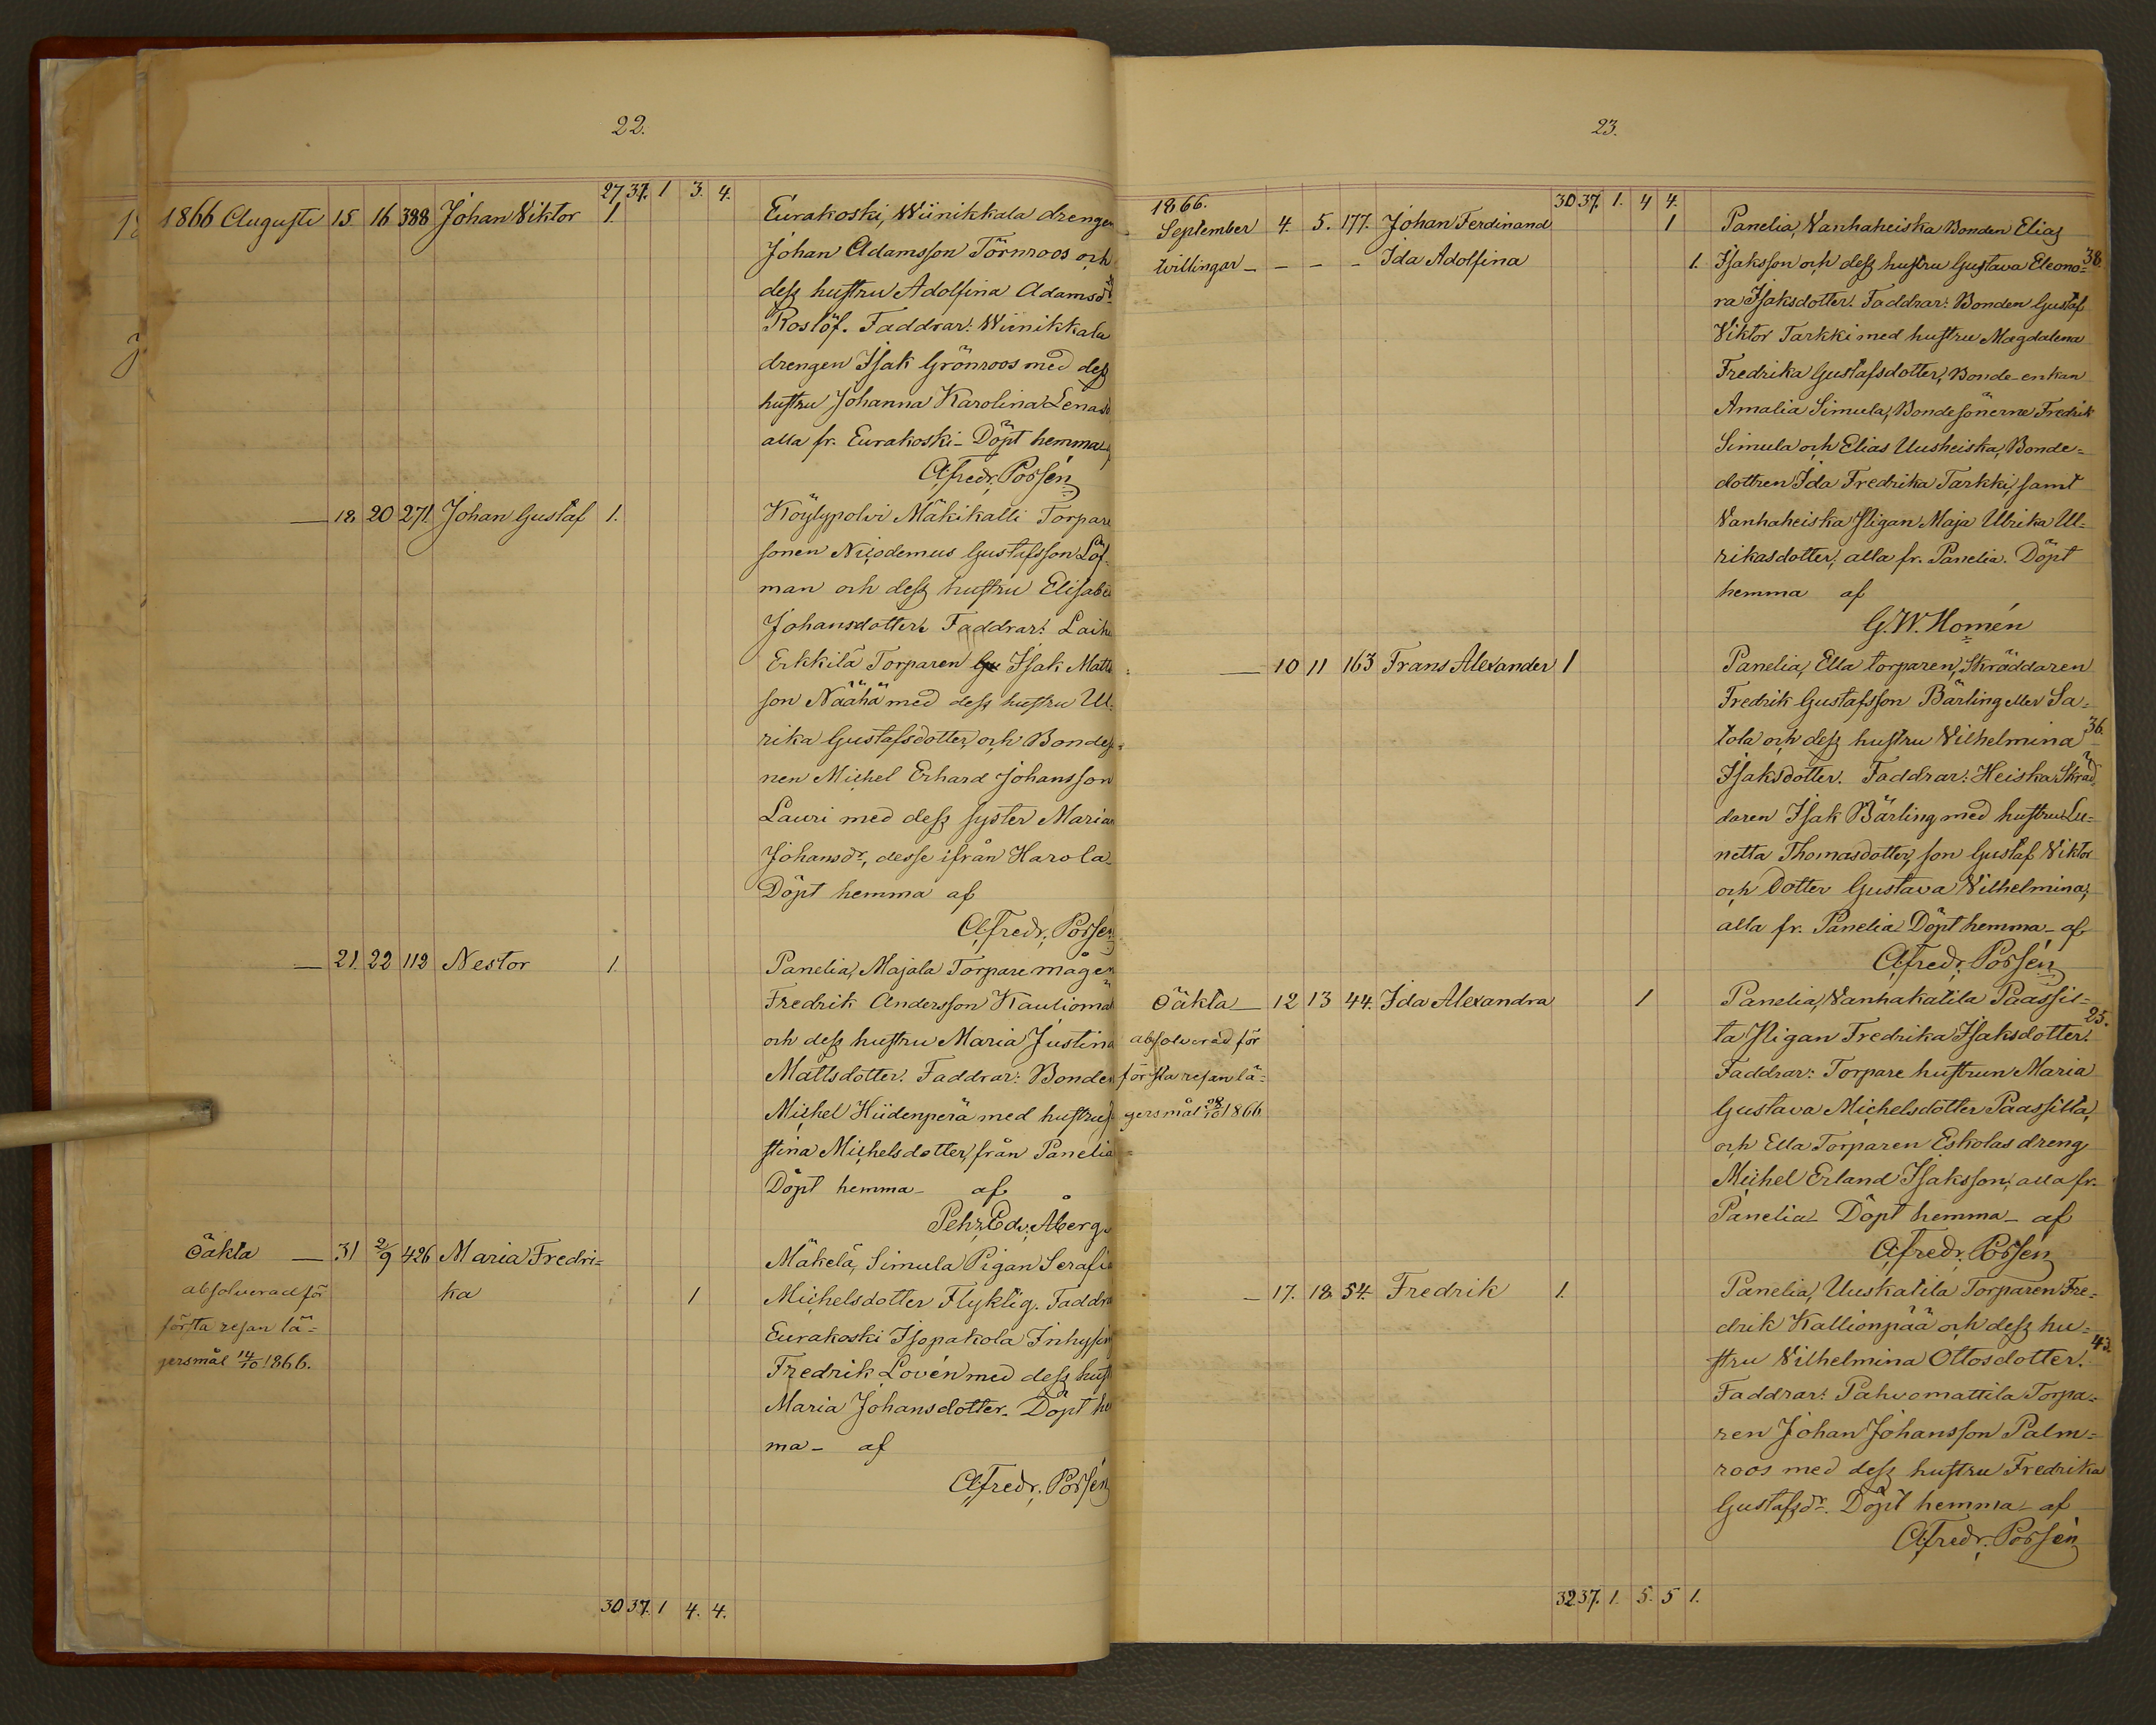 22.
27 37. 1 3. 4.
1866 Augusti 15. 16 388 Johan Viktor 1. Eurakoski, Wiinikkala drengen
Johan Adamsson Törnroos och
dess hustru Adolfina Adamsdr
Roslöf. Faddrar: Wiinikkala
drengen Isak Grönroos med dess
hustru Johanna Karolina Lenasd
alla fr. Eurakoski - Döpt hemma af
A. Fredr. Porsén
— 18. 20 271. Johan Gustaf 1. Köylypolvi Mäkikalli Torpare
sonen Nicodemus Gustafsson Löf-
man och dess hustru Elisabe
Johansdotter. Faddrar: Laih
Erkkilä Torparen Isak Matts
son Näähä med dess hustru Ul-
rika Gustafsdotter, och Bondes
nen Michel Erhard Johansson
Lauri med dess syster Maria
Johansdr, desse ifrån Harola -
Döpt hemma af
A. Fredr. Porsén
— 21. 22 112 Nestor 1. Panelia, Majala Torpare mågen
Fredrik Andersson Kauliomä
och dess hustru Maria Justina
Mattsdotter. Faddrar: Bonden
Michel Hiidenperä med hustru
stina Michelsdotter, från Panelia
Döpt hemma - af
Pehr Edv. Åberg.
Oäkta — 31 2/9 426 Maria Fredri= Mäkelä, Simula Pigan Serafi
absolverad för ka 1 Michelsdotter Flyktig. Faddra
första resan lä= Eurakoski Isopakola Inhysin
gersmål 14/10 1866. Fredrik Lovén med dess hust
Maria Johansdotter. Döpt he
ma - af
A. Fredr. Porsén
30 37. 1 4. 4.
23.
1866. 30 37. 1. 4 4.
September 4. 5. 177. Johan Ferdinand 1 Panelia, Vanhaheiska Bonden Elias
tvillingar - - - - Ida Adolfina 1. Isaksson och dess hustru Gustava Eleono= 38.
ra Isaksdotter. Faddrar: Bonden Gustaf
Viktor Tarkki med hustru Magdalena
Fredrika Gustafsdotter, Bonde-enkan
Amalia Simula, Bondesönerne Fredrik
Simula och Elias Uusheiska, Bonde=
dottren Ida Fredrika Tarkki, samt
Vanhaheiska Pigan Maja Ulrika Ul=
rikasdotter, alla fr. Panelia. Döpt
hemma af
G. W. Homén
— 10 11 163 Frans Alexander 1 Panelia, Ella torparen, Skräddaren
Fredrik Gustafsson Bärling eller Sa=
tola och dess hustru Vilhelmina 36.
Isaksdotter. Faddrar: Heiska Skräd=
daren Isak Bärling med hustru Lu=
netta Thomasdotter, son Gustaf Viktor
och Dotter Gustava Vilhelmina,
alla fr. Panelia Döpt hemma - af
A. Fredr. Porsén
Oäkta — 12 13 44. Ida Alexandra 1 Panelia, Vanhakatila Paassil=
absolverad för ta Pigan Fredrika Isaksdotter. 25.
första resan lä= Faddrar: Torpare hustrun Maria
gersmål 28/10 1866 Gustava Michelsdotter Paassilta,
och Ella Torparen Eskolas dreng
Michel Erland Isaksson, alla fr.
Panelia - Döpt hemma - af
A. Fredr. Porsén
— 17. 18. 54. Fredrik 1. Panelia, Uuskatila Torparen Fre=
drik Kallionpää och dess hu=
stru Vilhelmina Ottosdotter. 43.
Faddrar: Pahvomattila Torpa=
ren Johan Johansson Palm=
roos med dess hustru Fredrika
Gustafsdr. Döpt hemma - af
A. Fredr. Porsén
32 37. 1. 5. 5 1.